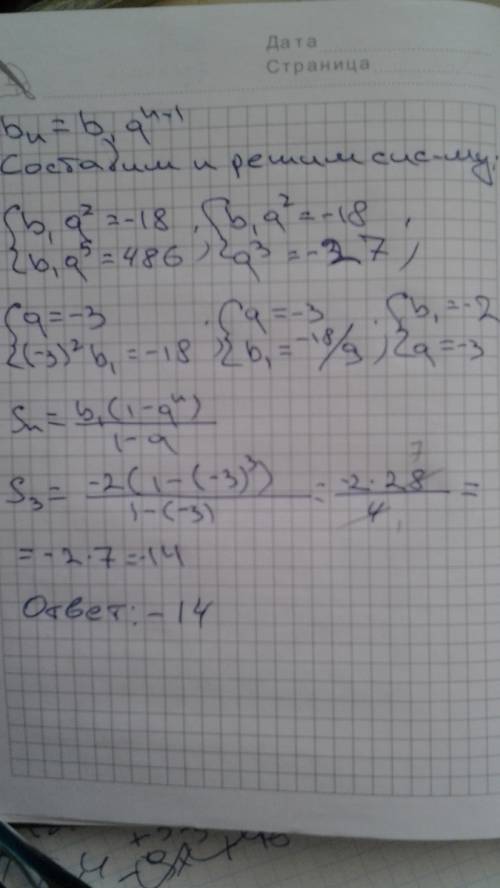 Дата
Страница
bₙ = b₁qⁿ⁻¹
Составим и решим сис-му:
{b₁q² = -18 , {b₁q² = -18 ,
{b₁q⁵ = 486 {q³ = -27 ;
{q = -3 , {q = -3 , {b₁ = -2
{(-3)² b₁ = -18 {b₁ = -18/9 {q = -3
Sₙ = b₁(1-qⁿ) / 1-q
S₃ = -2(1-(-3)³) / 1-(-3) = -2·28 / 4 =
= -2·7 = -14
Ответ: -14